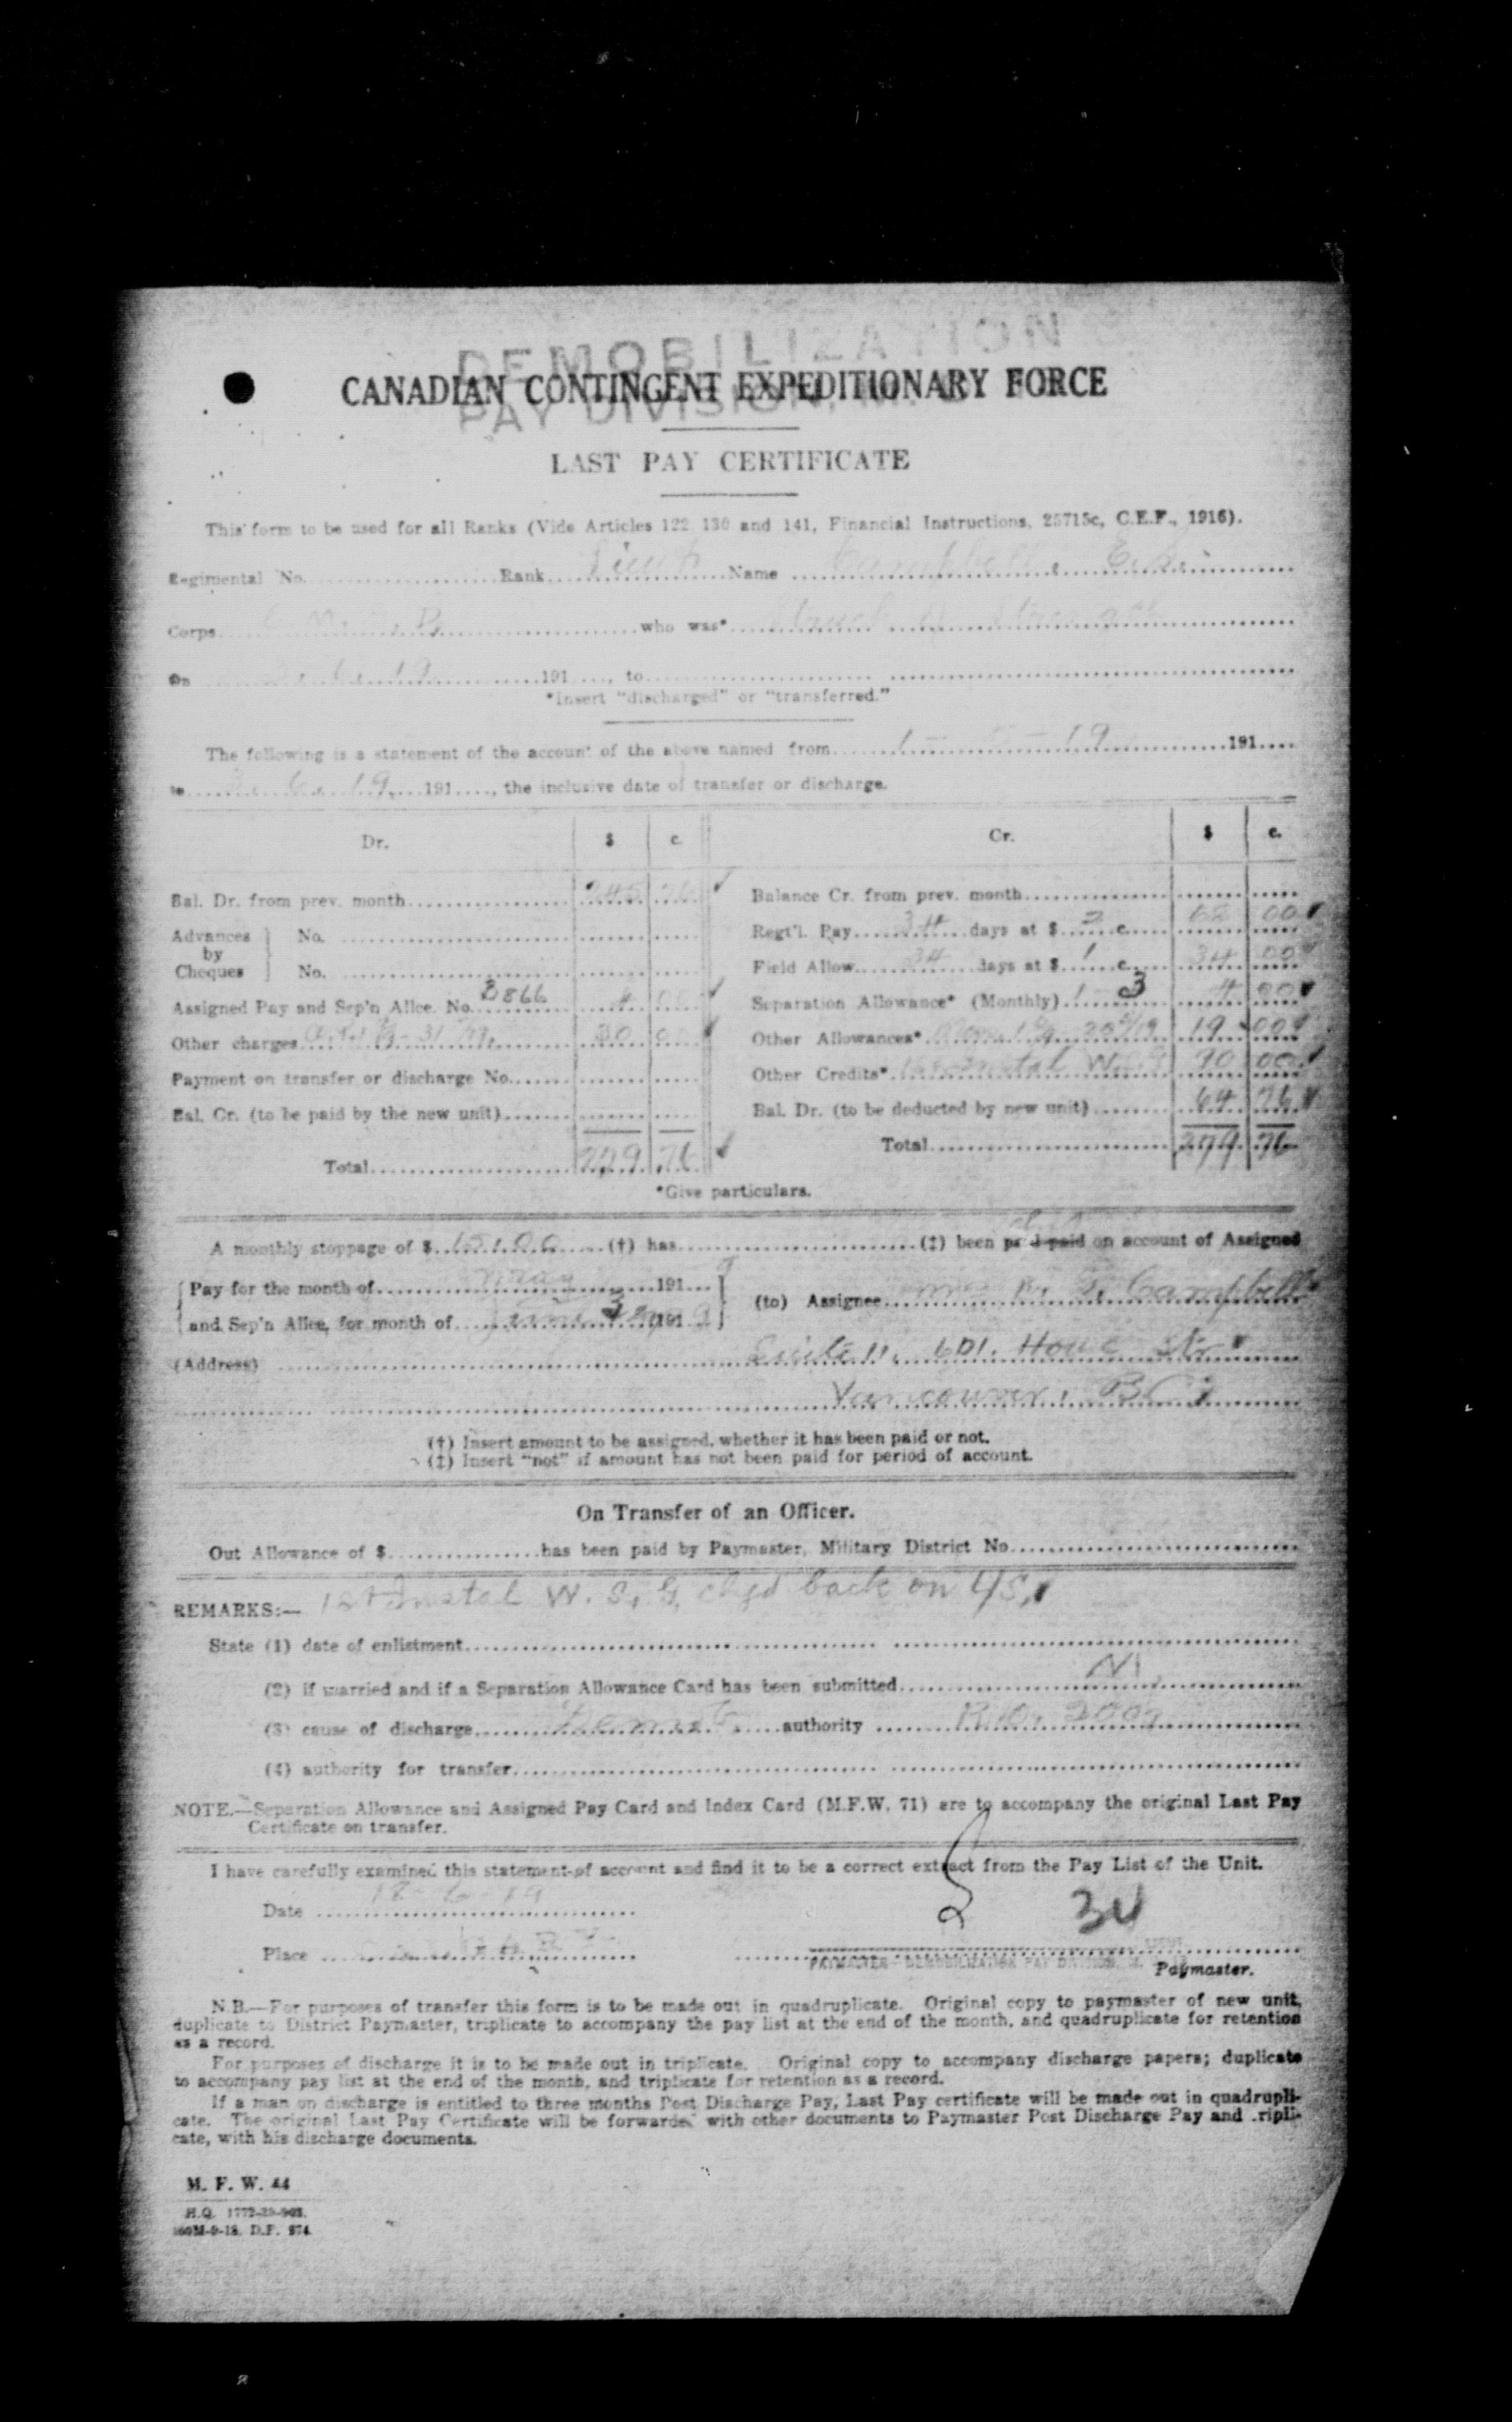 DEMOBILIZATION
PAY DIVISION
CANADIAN CONTINGENT EXPEDITIONARY FORCE
LAST PAY CERTIFICATE
This form to be used for all Ranks (Vide Articles 122 130 and 141, Financial Instructions, 25715c, C.E.F., 1916).
Regimental No. Rank Lieut Name Campbell
Corps who was*
On 191 , to
*Insert "discharged" or "transferred."
The following is a statement of the account of the above named from 19 191
to 19 191 , the inclusive date of transfer or discharge.
Dr. $ c. Cr. $ c.
Bal. Dr. from prev. month 245 76 Balance Cr. from prev. month
Advances by Cheques No. Regt'l. Pay 34 days at $ 2 c. 68 00
No. Field Allow. 34 days at $ 1 c. 34 00
Assigned Pay and Sep'n Allce. No. 3866 4 00 Separation Allowance* (Monthly) 1 - 3 4 00
Other charges 30 00 Other Allowances* 19 00
Payment on transfer or discharge No. Other Credits* 90 00
Bal. Cr. (to be paid by the new unit) Bal. Dr. (to be deducted by new unit) 64 76
Total 279 76 Total 279 76
*Give particulars.
A monthly stoppage of $ (†) has (‡) been paid on account of Assigned
Pay for the month of May 191
and Sep'n Allce. for month of June 191 9 (to) Assignee Campbell
(Address) Suite 11, 601 Howe Str
Vancouver, B.C.
(†) Insert amount to be assigned, whether it has been paid or not.
(‡) Insert "not" if amount has not been paid for period of account.
On Transfer of an Officer.
Out Allowance of $ has been paid by Paymaster, Military District No.
REMARKS:— 1st Instal W. S. G. chgd back on
State (1) date of enlistment
(2) if married and if a Separation Allowance Card has been submitted M
(3) cause of discharge Demob authority R.O.
(4) authority for transfer
NOTE.—Separation Allowance and Assigned Pay Card and Index Card (M.F.W. 71) are to accompany the original Last Pay
Certificate on transfer.
I have carefully examined this statement of account and find it to be a correct extract from the Pay List of the Unit.
Date
34
Place
PAYMASTER DEMOBILIZATION PAY DIVISION
Paymaster.
N.B.—For purposes of transfer this form is to be made out in quadruplicate. Original copy to paymaster of new unit,
duplicate to District Paymaster, triplicate to accompany the pay list at the end of the month, and quadruplicate for retention
as a record.
For purposes of discharge it is to be made out in triplicate. Original copy to accompany discharge papers; duplicate
to accompany pay list at the end of the month, and triplicate for retention as a record.
If a man on discharge is entitled to three months Post Discharge Pay, Last Pay certificate will be made out in quadrupli-
cate. The original Last Pay Certificate will be forwarded with other documents to Paymaster Post Discharge Pay and tripli-
cate, with his discharge documents.
M. F. W. 44
H.Q. 1772-
D.F. 974